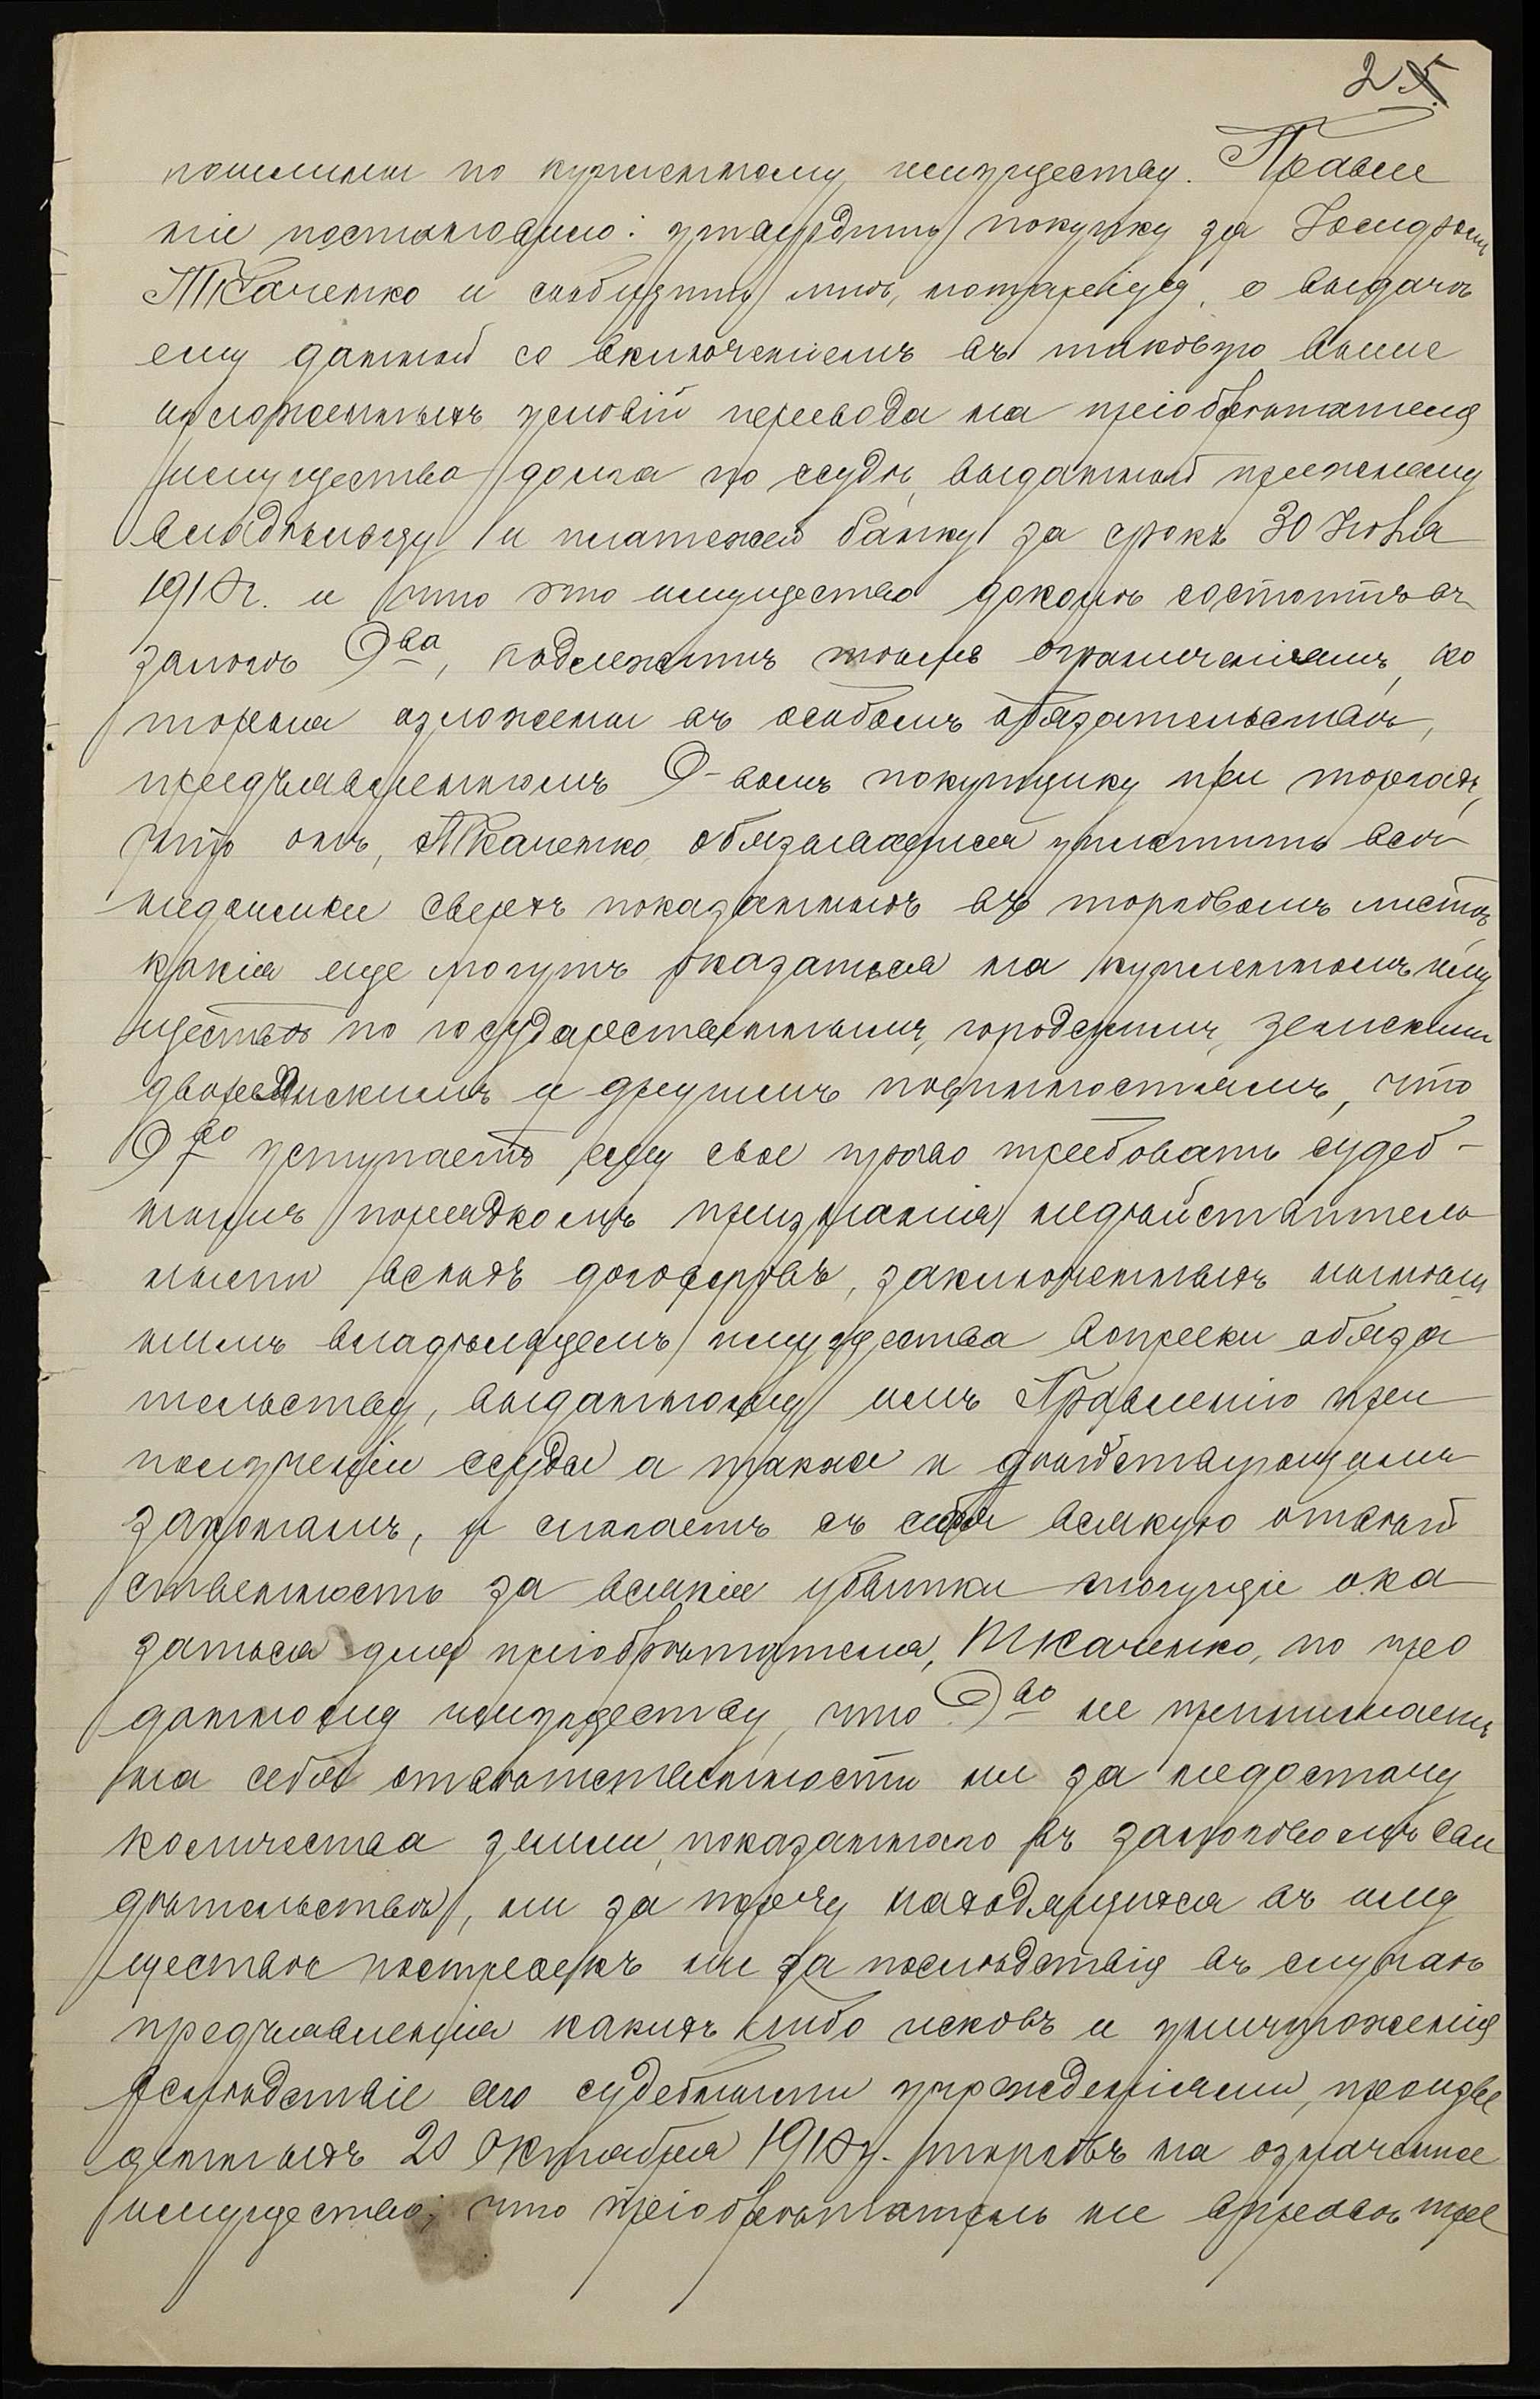 25
пошлины по купленному имуществу. Правле
ніе постановило: утвердить покупку за Іосифомъ
Ткаченко и сообщить мнѣ, нотаріусу, о выдачѣ
ему данной со включеніемъ въ таковую выше
изложенныхъ условій перевода на пріобрѣтателя
имущества долга по ссудѣ, выданной прежнему
владѣльцу и платежей банку за срокъ 30 Іюня
1910 г. и что это имущество доколѣ состоитъ въ
залогѣ О<sup>ва</sup>, подлежитъ тѣмъ ограниченіямъ, ко
торыя изложены въ особомъ обязательствѣ,
предъявленномъ О-вомъ покупщику при торгахъ,
что онъ, Ткаченко обязывается уплатить всѣ
недоимки сверхъ показанныхъ въ торговомъ листѣ
какія еще могутъ оказаться на купленномъ иму
ществѣ по государственнымъ, городскимъ, земскимъ
дворянскимъ и другимъ повинностямъ, что
О<sup>во</sup> уступаетъ ему свое право требовать судеб-
нымъ порядкомъ признанія недѣйствитель
ными всѣхъ договоровъ, заключенныхъ нынѣш
нимъ владѣльцемъ имущества вопреки обяза
тельству, выданному имъ Правленію при
полученіи ссуды а также и дѣйствующимъ
законамъ, и слагаетъ съ себя всякую отвѣт
ственность за всякіе убытки могущіе ока
заться для пріобрѣтателя, Ткаченко, по про
данному имуществу, что О<sup>во</sup> не принимаетъ
на себя отвѣтственности ни за недостачу
количества земли, показаннаго въ залоговомъ сви
дѣтельствѣ, ни за порчу находящихся въ иму
ществѣ построекъ ни за послѣдствія въ случаѣ
предъявленія какихъ либо исковъ и уничтоженія
вслѣдствіе сего судебными учрежденіями, произве
денныхъ 20 Октября 1910 г. торговъ на означенное
имущество; что пріобрѣтатель не вправѣ тре